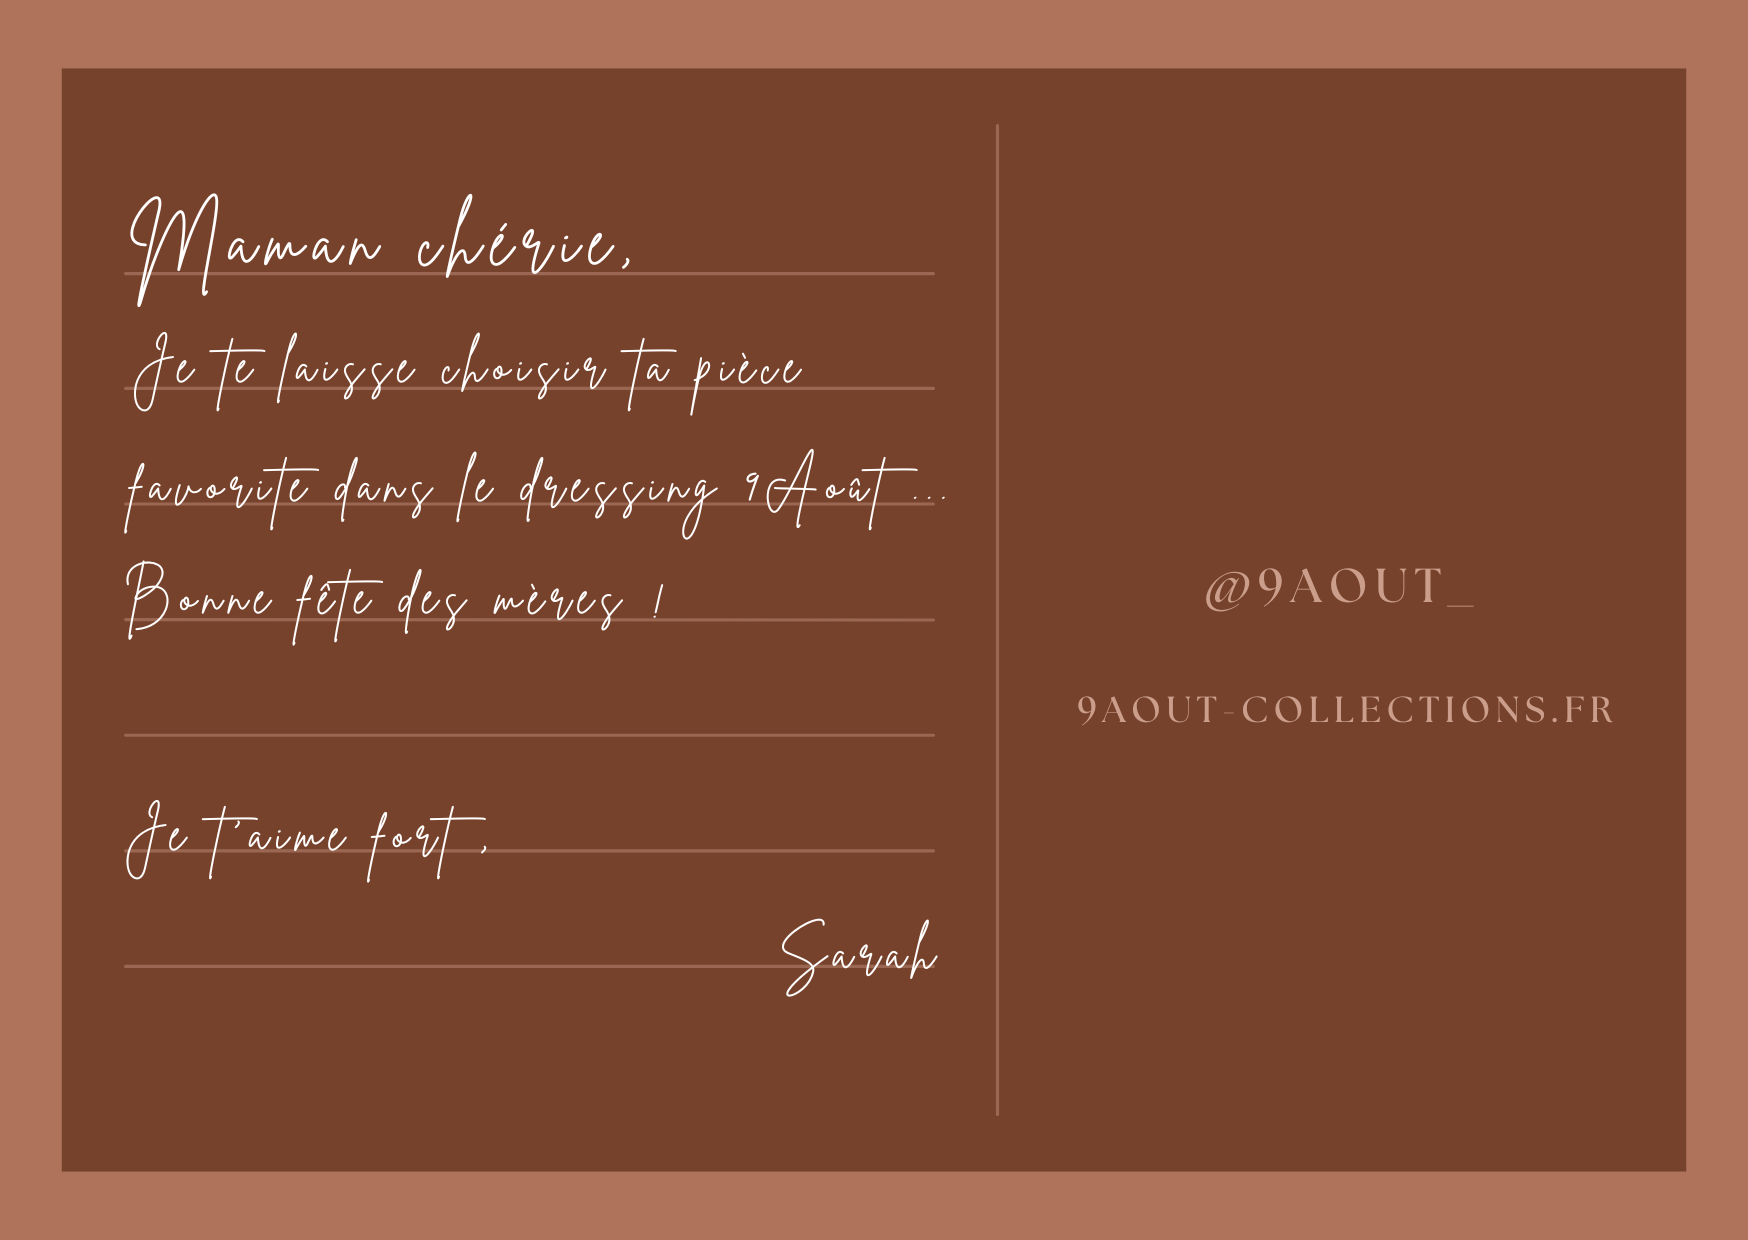 Maman chérie,
Je te laisse choisir ta pièce
favorite dans le dressing 9Août ...
Bonne fête des mères !
Je t'aime fort,
Sarah
@9AOUT_
9AOUT-COLLECTIONS.FR